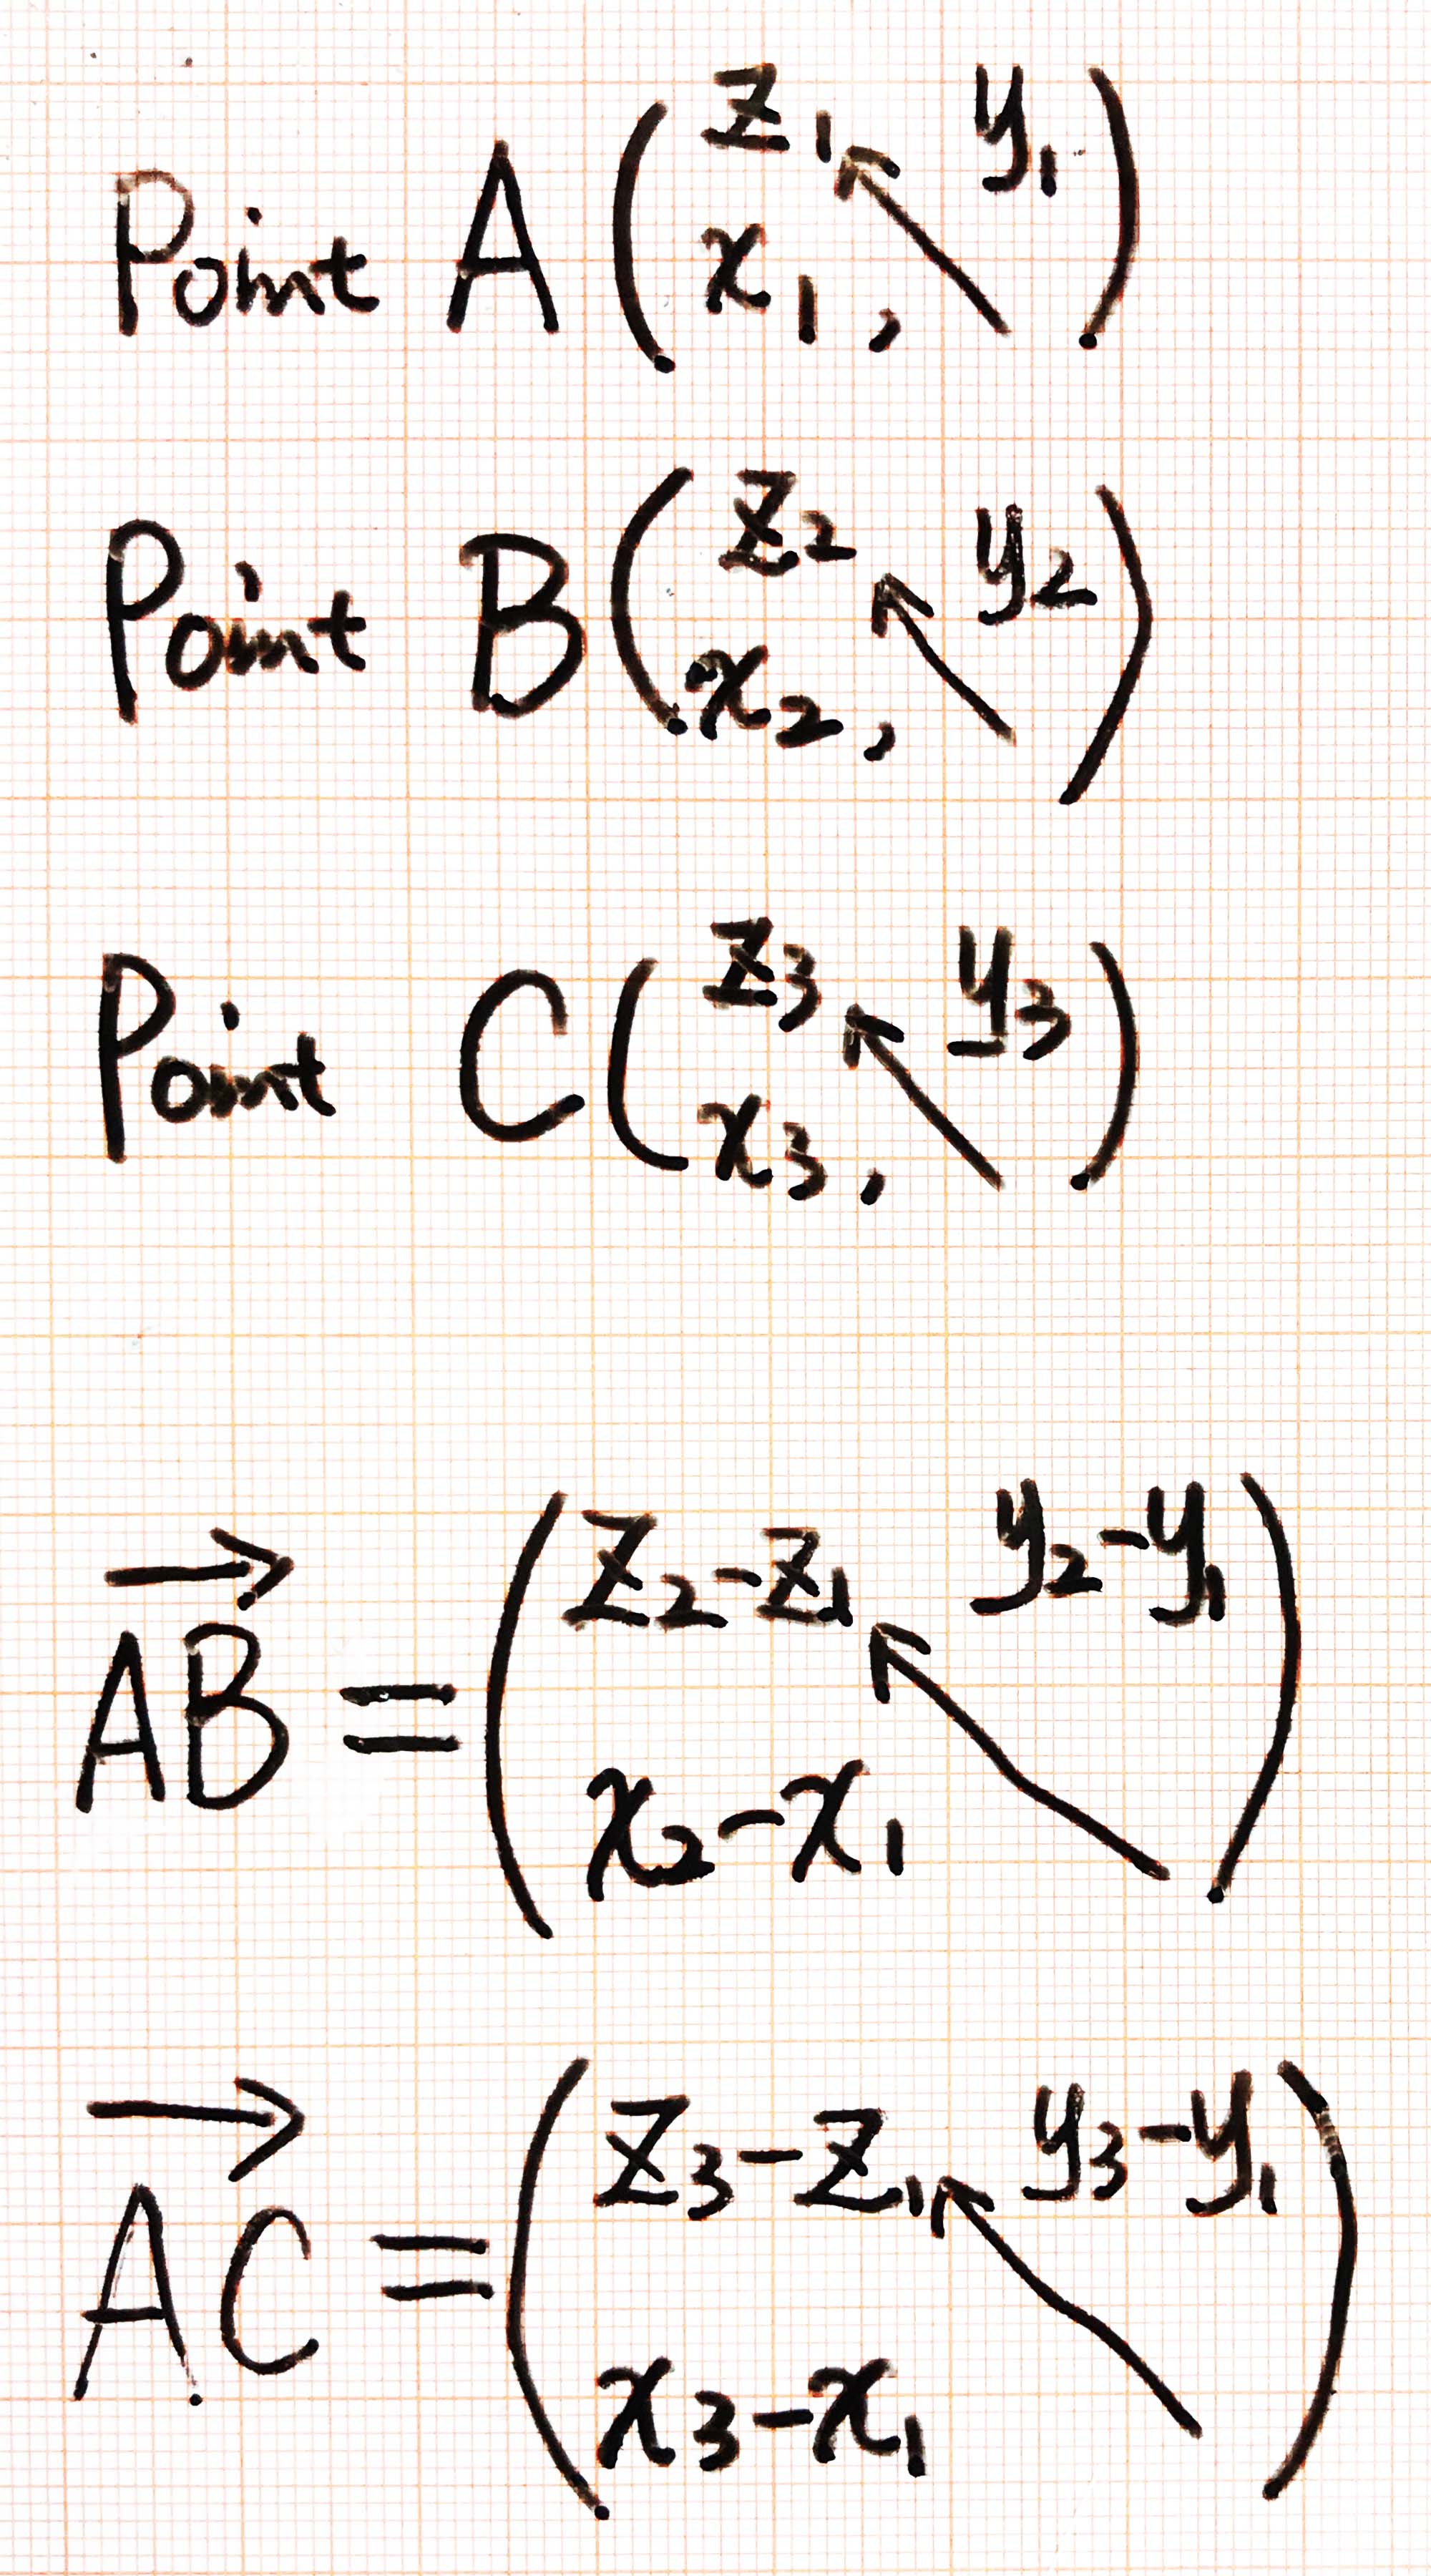 Point A ( z₁ ↖ y₁
x₁, )
Point B ( z₂ ↖ y₂
x₂, )
Point C ( z₃ ↖ y₃
x₃, )
→
AB = ( z₂-z₁ ↖ y₂-y₁
x₂-x₁ )
→
AC = ( z₃-z₁ ↖ y₃-y₁
x₃-x₁ )